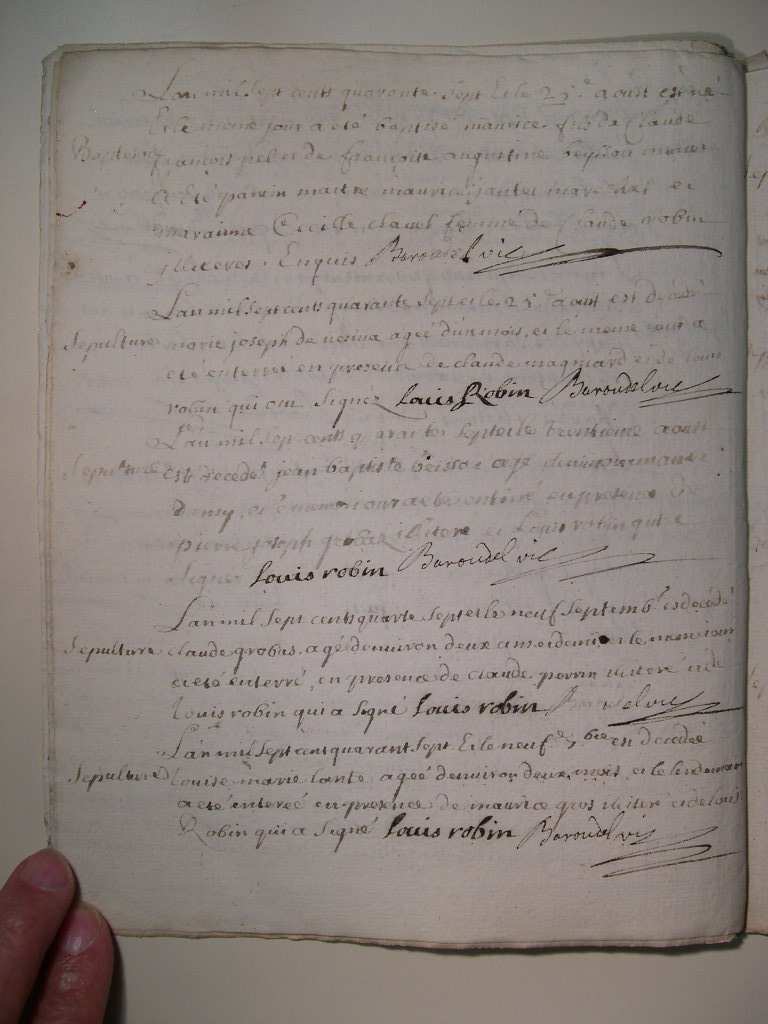 L'an mil sept cents quarante sept et le 25e aoust est né
et le meme jour a eté baptisé maurice fils de Claude
Bapteme françois pel et de françoise augustine
a eté parrin maitre maurice et
maraine Cecille clavel femme de Claude robin
illiteres. Enquis Baroudel vic
L'an mil sept cents quarante sept et le 25e aout est decedé
Sepulture marie joseph de agée d'un mois, et le meme jour a
eté enterré en presence de claude magniard et de louis
robin qui ont signez louis Robin Baroudel vic
L'an mil sept cents quarante sept et le trentieme aoust
Sepulture est decedé jean baptiste age
demy, et meme jour a eté enterré en presence de
pierre joseph illitere et louis robin qui a
signé louis robin Baroudel vic
L'an mil sept cents quarte sept et le neuf septembe est decédé
Sepulture claude grobas agé d'enuiron deux ans et demi et le meme jour
a eté enterré, en presence de claude perrin illiteré et de
louis robin qui a signé louis robin Baroudel vic
L'an mil sept cent quarant sept Et le neufe 7bre en decedé
Sepulture louise marie lante agée denuiron deux mois, et le lendemain
a eté enterée en presence de maurice gros illiteré et de louis
Robin qui a signé louis robin Baroudel vic